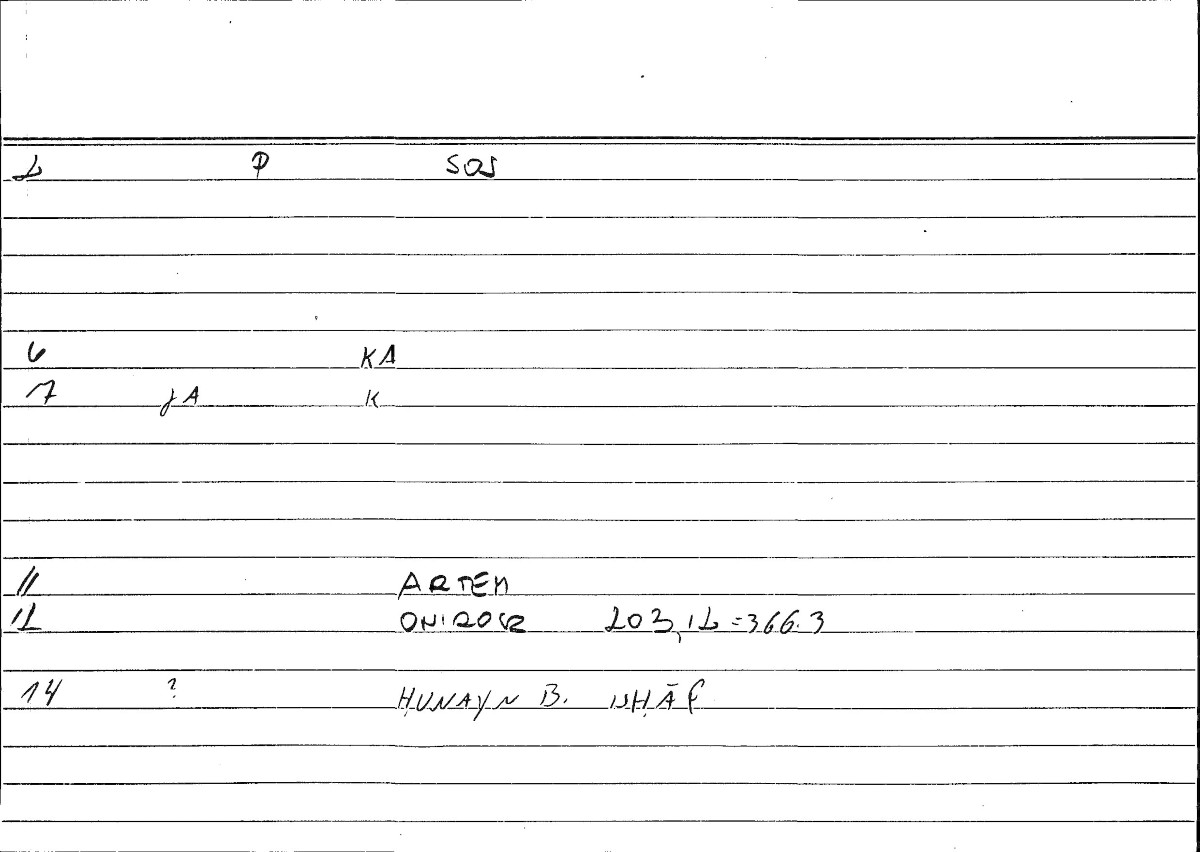 2 P SOS
6 KA
7 JA K
11 ARTEM
12 ONIROCR 203,12=366.3
14 ? ḤUNAYN B. ISḤĀQ